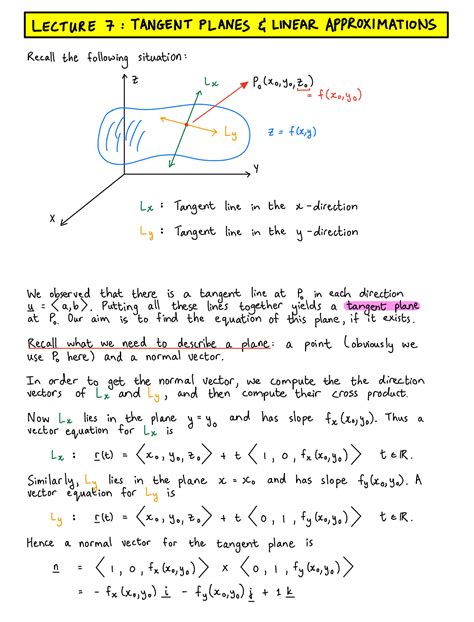 LECTURE 7 : TANGENT PLANES & LINEAR APPROXIMATIONS
Recall the following situation:
z
Lx
P₀(x₀,y₀,z₀)
= f(x₀,y₀)
Ly
z = f(x,y)
y
x
Lx : Tangent line in the x-direction
Ly : Tangent line in the y-direction
We observed that there is a tangent line at P₀ in each direction
u = <a,b>. Putting all these lines together yields a tangent plane
at P₀. Our aim is to find the equation of this plane, if it exists.
Recall what we need to describe a plane: a point (obviously we
use P₀ here) and a normal vector.
In order to get the normal vector, we compute the the direction
vectors of Lx and Ly, and then compute their cross product.
Now Lx lies in the plane y = y₀ and has slope fx(x₀,y₀). Thus a
vector equation for Lx is
Lx : r(t) = <x₀, y₀, z₀> + t <1, 0, fx(x₀,y₀)> t∈ℝ.
Similarly, Ly lies in the plane x = x₀ and has slope fy(x₀,y₀). A
vector equation for Ly is
Ly : r(t) = <x₀, y₀, z₀> + t <0, 1, fy(x₀,y₀)> t∈ℝ.
Hence a normal vector for the tangent plane is
n = <1, 0, fx(x₀,y₀)> × <0, 1, fy(x₀,y₀)>
= - fx(x₀,y₀) i - fy(x₀,y₀) j + 1 k